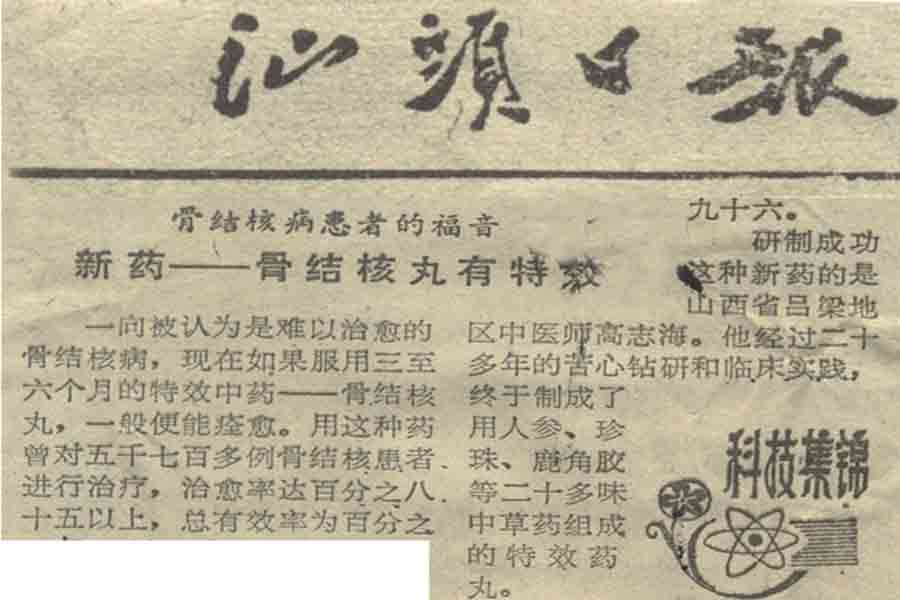 汕頭日报
骨结核病患者的福音
新药——骨结核丸有特效
一向被认为是难以治愈的
骨结核病，现在如果服用三至
六个月的特效中药——骨结核
丸，一般便能痊愈。用这种药
曾对五千七百多例骨结核患者
进行治疗，治愈率达百分之八
十五以上，总有效率为百分之
九十六。
研制成功
这种新药的是
山西省吕梁地
区中医师高志海。他经过二十
多年的苦心钻研和临床实践，
终于制成了
用人参、珍
珠、鹿角胶
等二十多味
中草药组成
的特效药
丸。
科技集锦